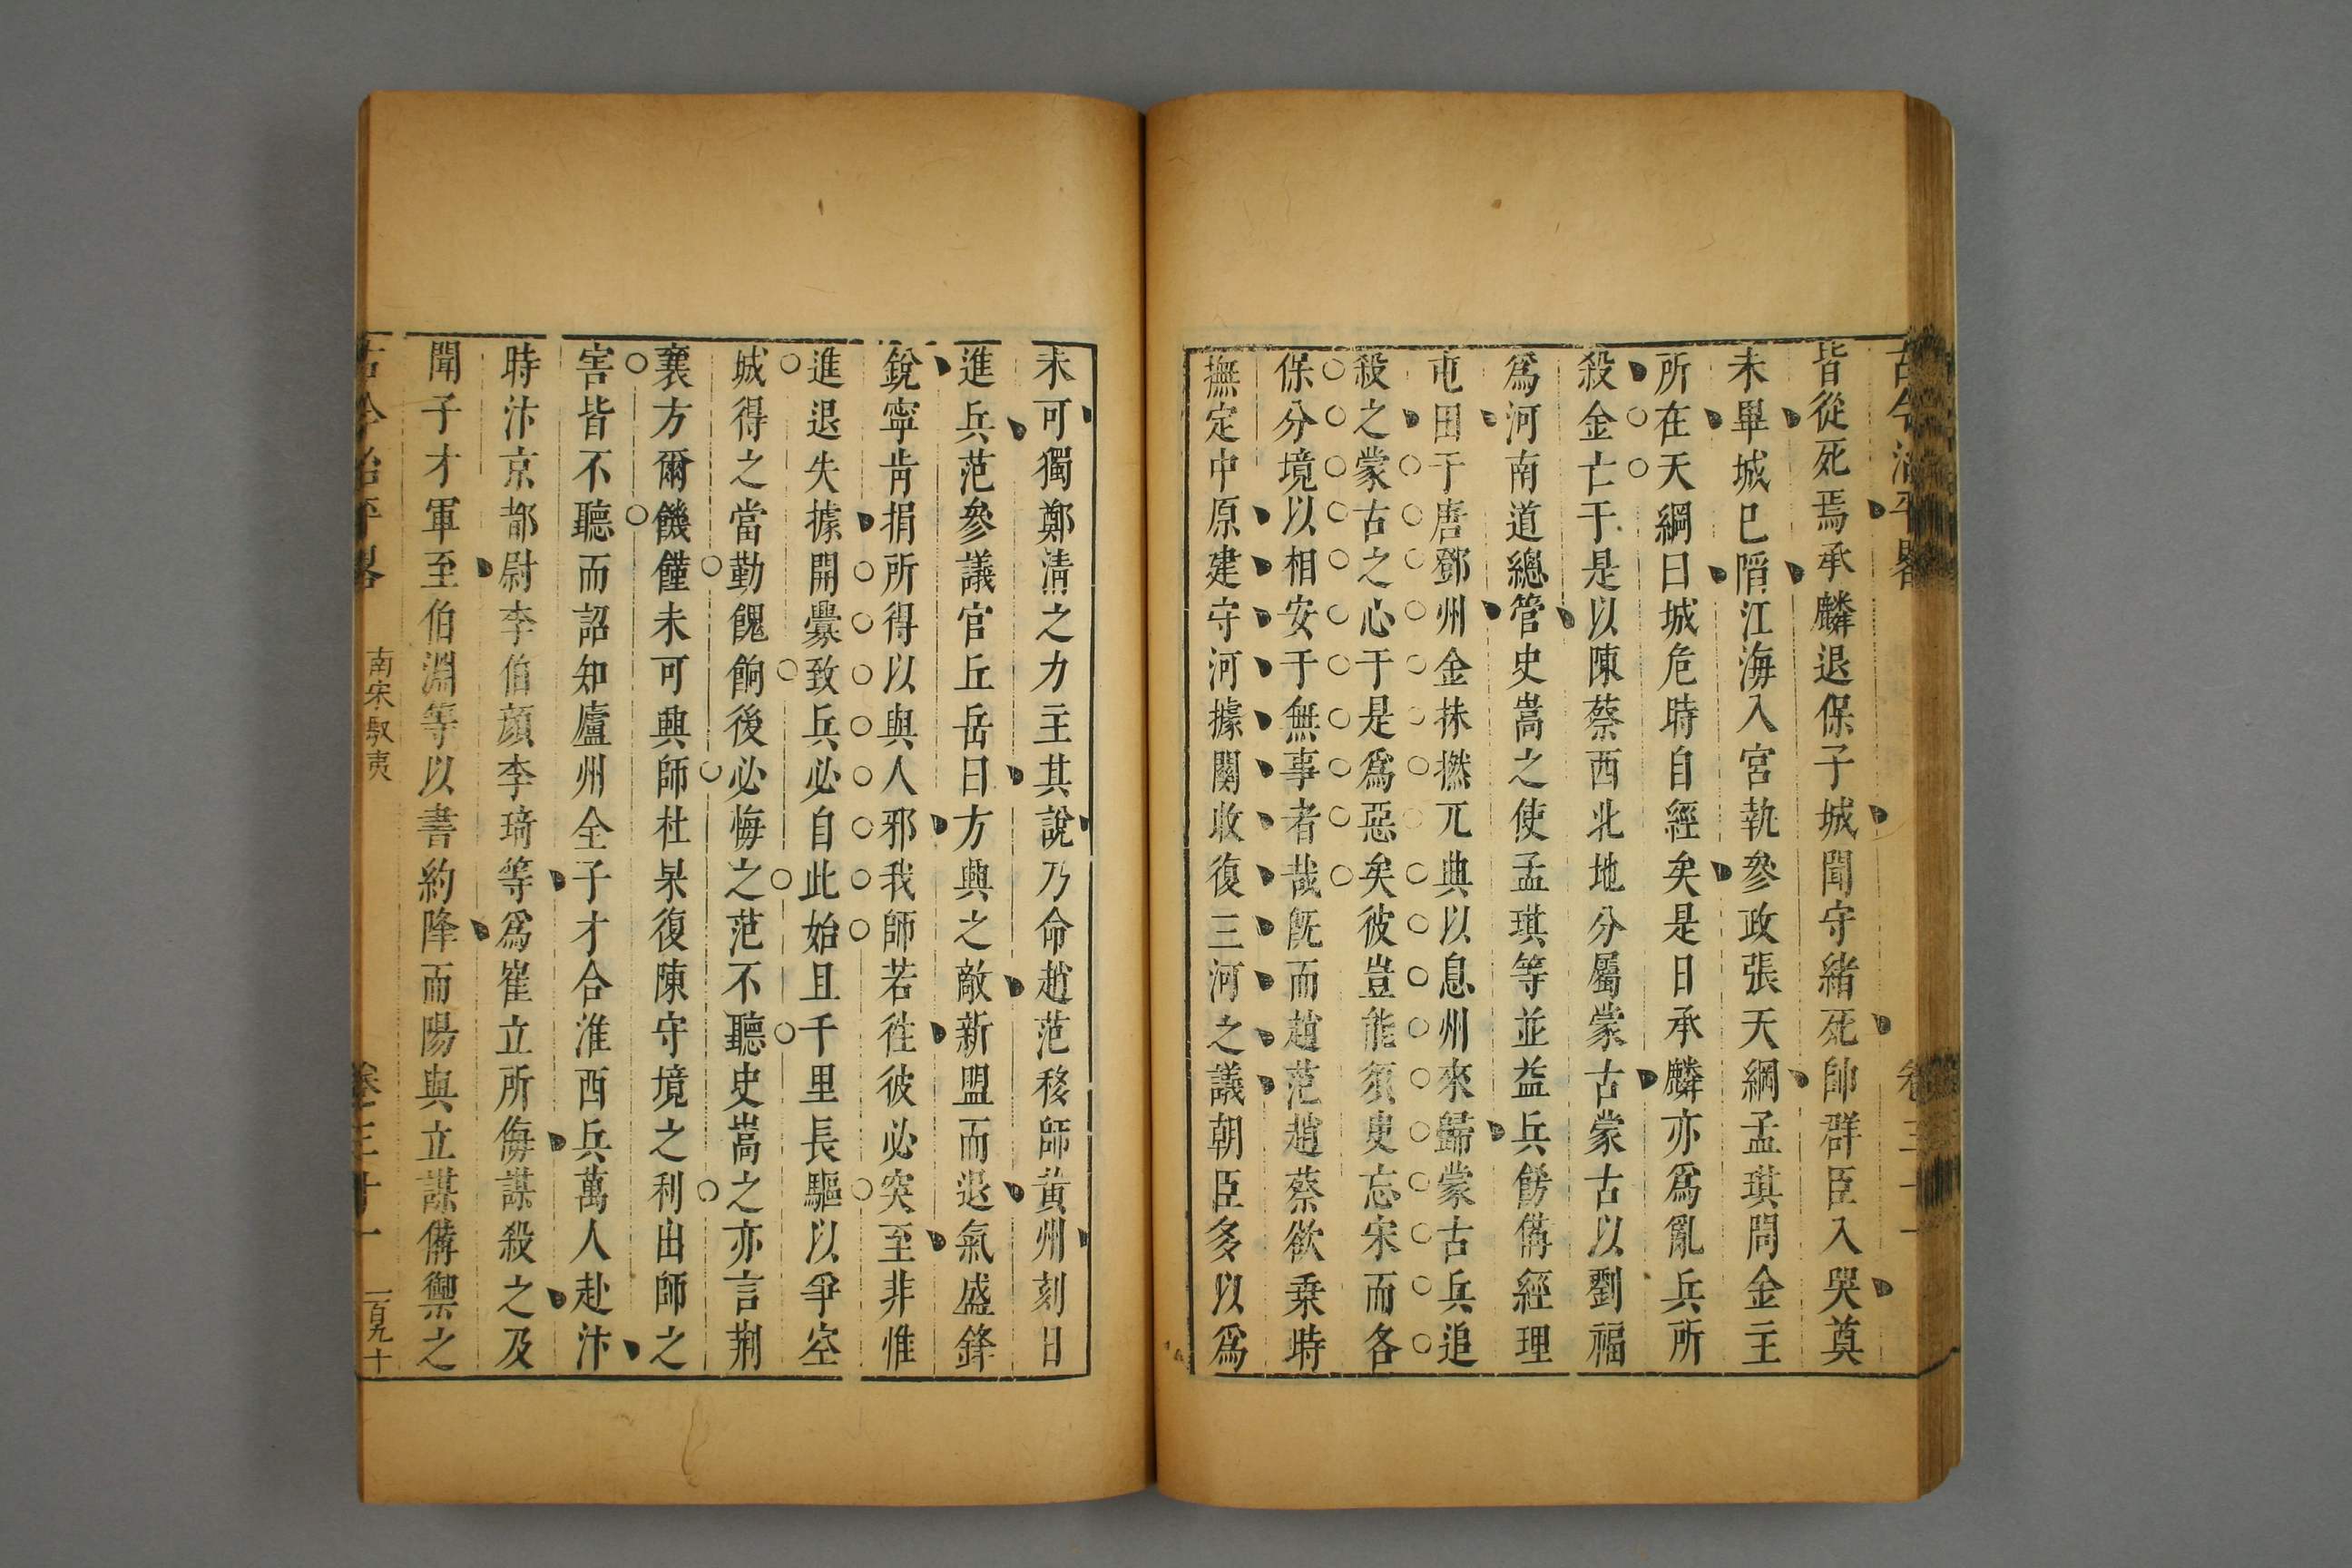 古今治平畧 卷三十一
皆從死焉承麟退保子城聞守緒死帥群臣入哭奠
未畢城已䧟江海入宮執參政張天綱孟珙問金主
所在天綱曰城危時自經矣是日承麟亦爲亂兵所
殺金亡于是以陳蔡西北地分屬蒙古蒙古以劉福
爲河南道總管史嵩之使孟珙等並益兵餝備經理
屯田于唐鄧州金抹撚兀典以息州來歸蒙古兵追
殺之蒙古之心于是爲惡矣彼豈能須臾忘宋而各
保分境以相安于無事者哉旣而趙范趙蔡欲乗時
撫定中原建守河據關收復三河之議朝臣多以爲
未可獨鄭清之力主其說乃命趙范移師黄州刻日
進兵范參議官丘岳曰方興之敵新盟而退氣盛鋒
銳寧肯捐所得以與人邪我師若徃彼必突至非惟
進退失據開釁致兵必自此始且千里長驅以爭空
城得之當勤餽餉後必悔之范不聽史嵩之亦言荆
襄方爾饑饉未可興師杜杲復陳守境之利出師之
害皆不聽而詔知廬州全子才合淮西兵萬人赴汴
時汴京都尉李伯淵李琦等爲崔立所侮謀殺之及
聞子才軍至伯淵等以書約降而陽與立謀備禦之
古今治平畧 南宋馭夷 卷三十一 一百九十